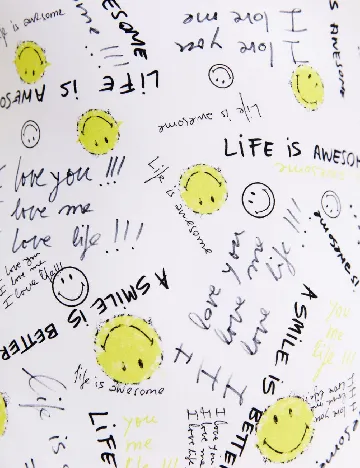 Life is awesome
AWESOME
me !!!
I love me
I love you
IS AWESOME
LiFE iS AWESO
Life is awesome
LiFE iS AWESOM
awesome
I love you !!!
I love me
love life !!!
Life is awesome
awesome
I love you
I love me
I love life !!!
I love you
I love me
I love life !!!
A SMILE IS BETTER
A SMILE IS BETTER
you
me
life !!!
life is awesome
Life is
LiFE
you
me
life
I love you
I love me
I love life